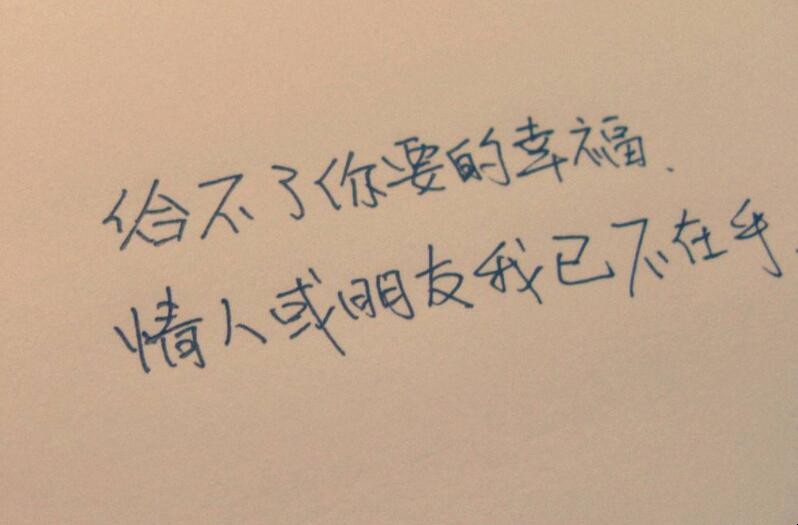 给不了你要的幸福.
情人或朋友我已不在乎.